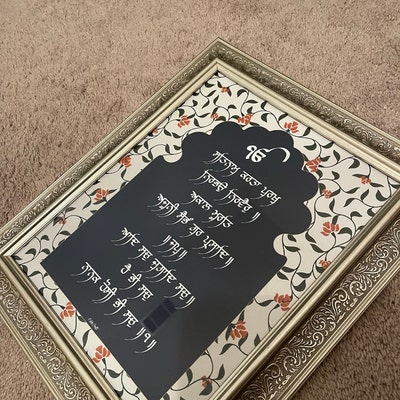 ੴ
ਸਤਿਨਾਮੁ ਕਰਤਾ ਪੁਰਖੁ
ਨਿਰਭਉ ਨਿਰਵੈਰੁ ॥
ਅਕਾਲ ਮੂਰਤਿ
ਅਜੂਨੀ ਸੈਭੰ ਗੁਰ ਪ੍ਰਸਾਦਿ॥
॥ਜਪੁ॥
ਆਦਿ ਸਚੁ ਜੁਗਾਦਿ ਸਚੁ॥
ਹੈ ਭੀ ਸਚੁ
ਨਾਨਕ ਹੋਸੀ ਭੀ ਸਚੁ ॥੧॥